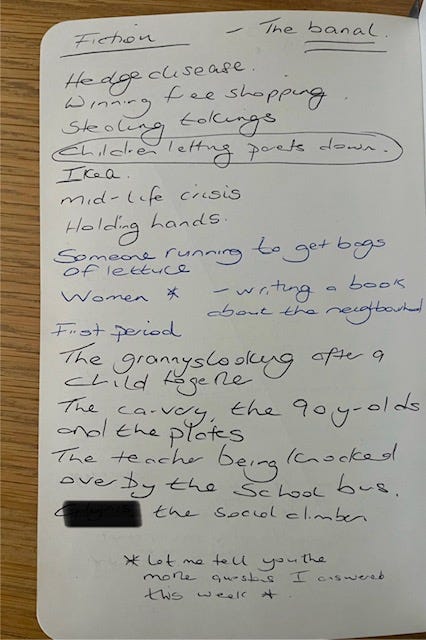 Fiction - The banal.
Hedge disease.
Winning free shopping.
Stealing takings
Children letting parents down.
Ikea.
mid-life crisis
Holding hands.
Someone running to get bags
of lettuce
Women * - writing a book
about the neighbourhood
First period
The grannys looking after a
child together
The carvery, the 90 y-olds
and the plates
The teacher being knocked
over by the school bus.
the social climber
* Let me tell you the
more questions I answered
this week *